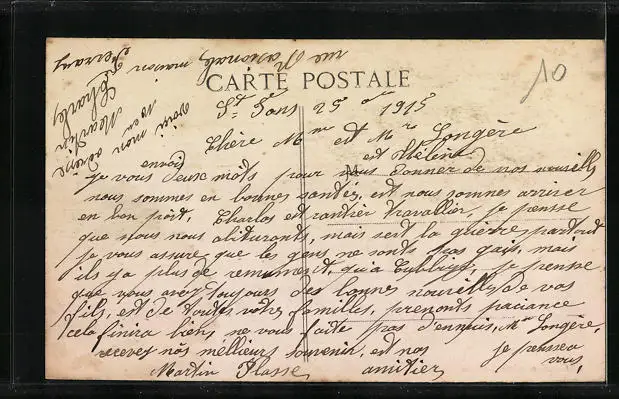 CARTE POSTALE
10
St Pons 25 1915
Chère Mme est Mr Longère
est Hélène
envoit
Je vous deux mots pour vous donner de nos nouvelles
nous sommes en bonnes santés, est nous sommes arriver
en bon port, Charles est rantrer travallier, je pensse
que nous nous abiturants, mais sert la guerre partout
je vous assure que les gens ne sonts pas gais, mais
ils y a plus de remument, qu'a je pensse
que vous avez toujours des bonnes nouvelles de vos
fils, est de toutes votre familles, prenonts paciance
cela finira bien, ne vous faite pas d'ennuis, Mme Longère,
recevez nôs méllieurs souvenir, est nos
amitier
je penssea
vous,
Martin Plasse
voici mon adrèse
Charles Martin
rue Nasionale
maison Ferrany